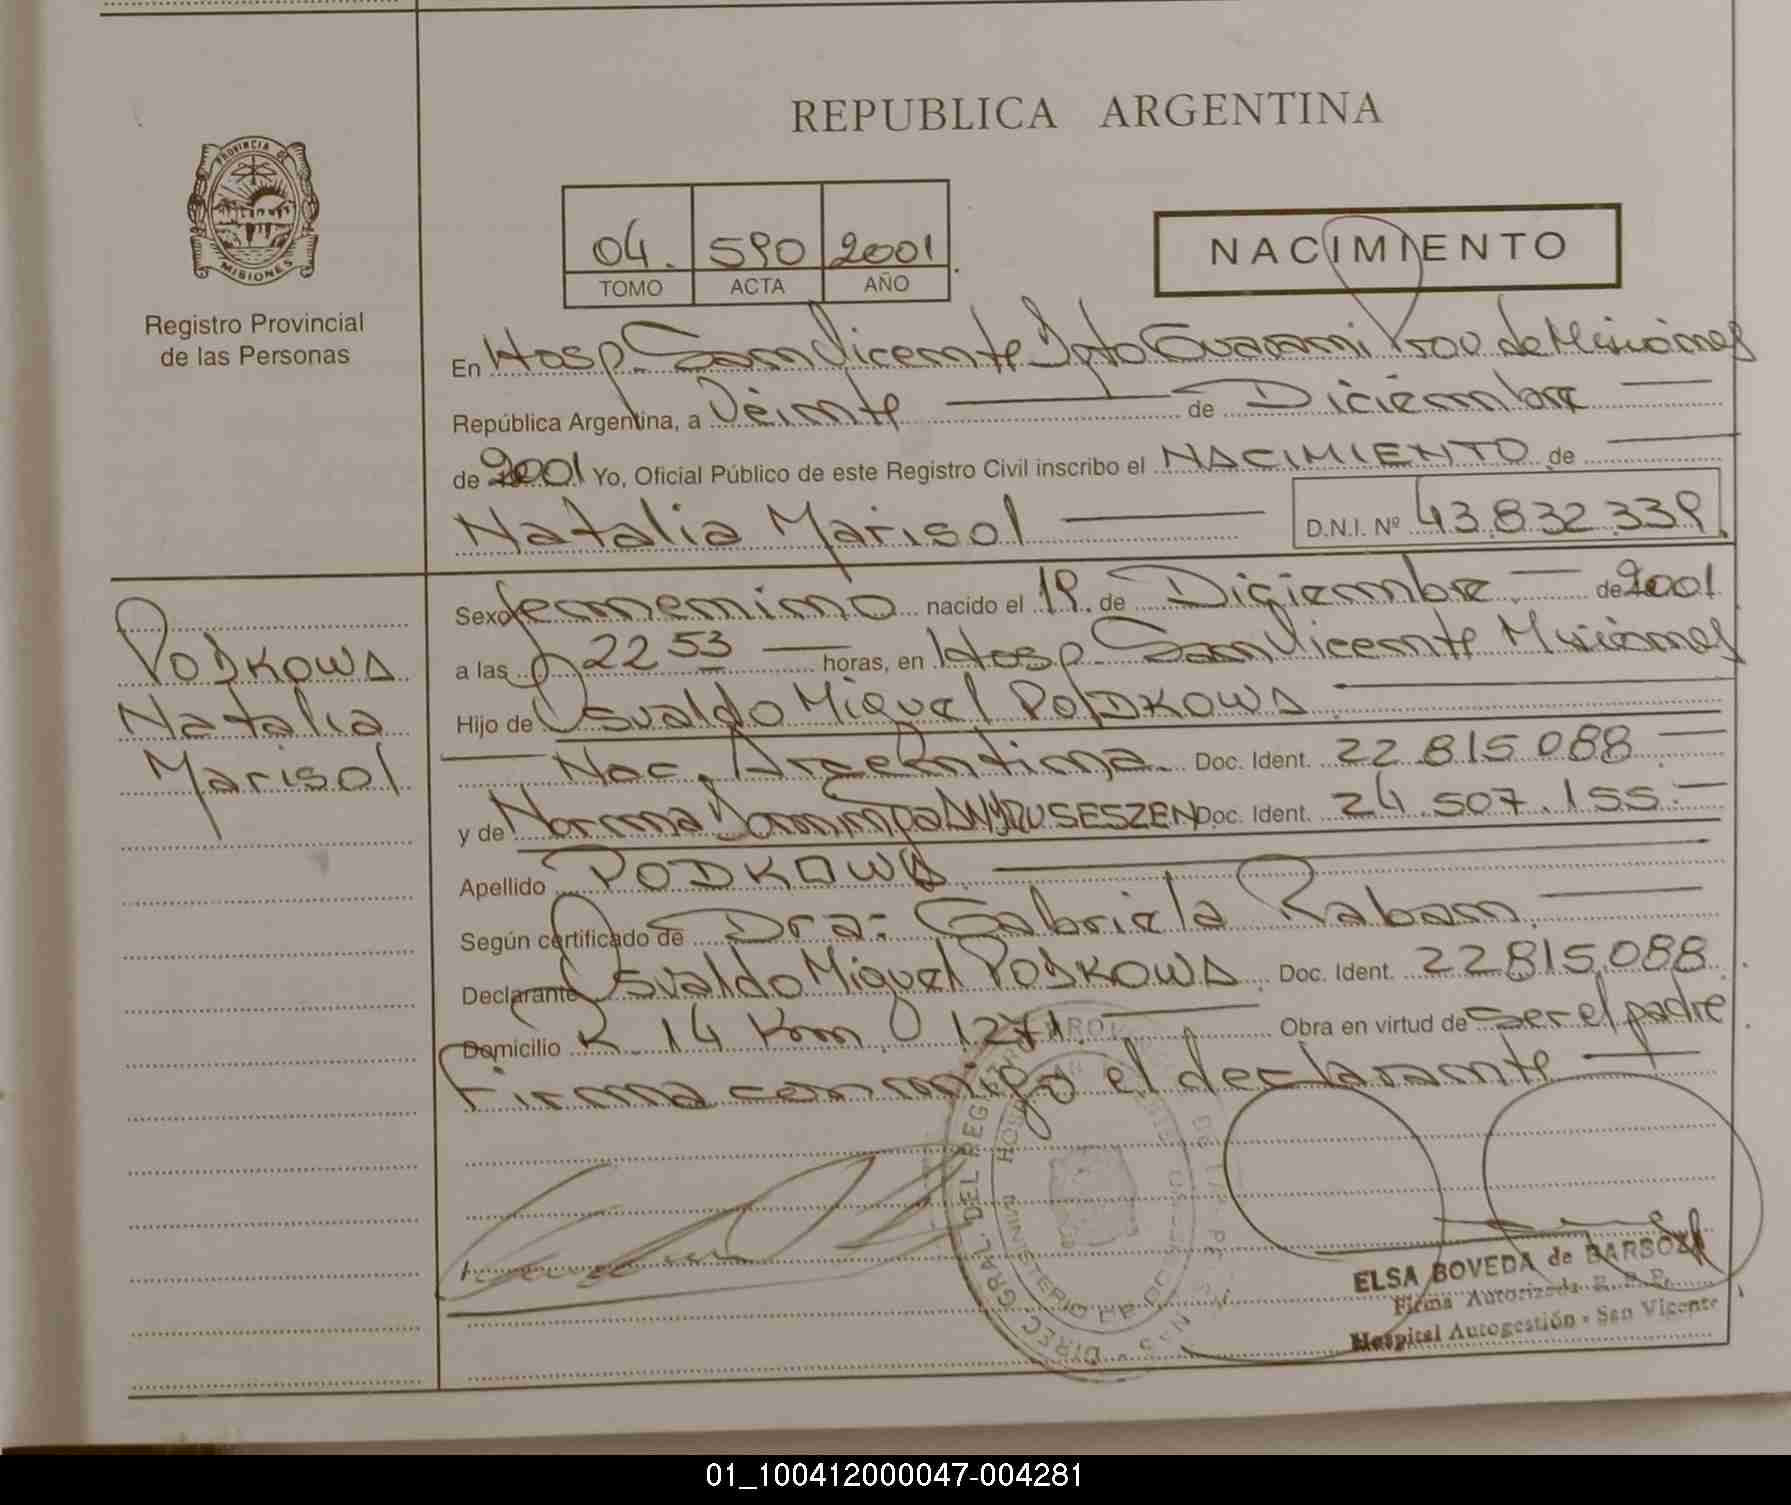 REPUBLICA ARGENTINA
PROVINCIA DE
MISIONES
Registro Provincial
de las Personas
04. 590 2001
TOMO ACTA AÑO
NACIMIENTO
En Hosp. San Vicente Dpto Guarani Prov. de Misiones
República Argentina, a Veinte de Diciembre
de 2001 Yo, Oficial Público de este Registro Civil inscribo el NACIMIENTO de
Natalia Marisol D.N.I. Nº 43.832.339
Podkowa
Natalia
Marisol
Sexo femenino nacido el 19. de Diciembre de 2001
a las 22 53 horas, en Hosp. San Vicente Misiones
Hijo de Osvaldo Miguel PODKOWA
Nac. Argentina Doc. Ident. 22 815 088
y de Norma Doc. Ident. 24.507.155
Apellido PODKOWA
Según certificado de Dra: Gabriela Raban
Declarante Osvaldo Miguel Podkowa Doc. Ident. 22815.088
Domicilio R. 14 Km. 1271. Obra en virtud de Ser el padre
Firma conmigo el declarante
DIREC. GRAL. DEL REG
MINISTERIO DE
ELSA BOVEDA de BARBOZA
Firma Autorizada
Hospital Autogestión - San Vicente
01_100412000047-004281